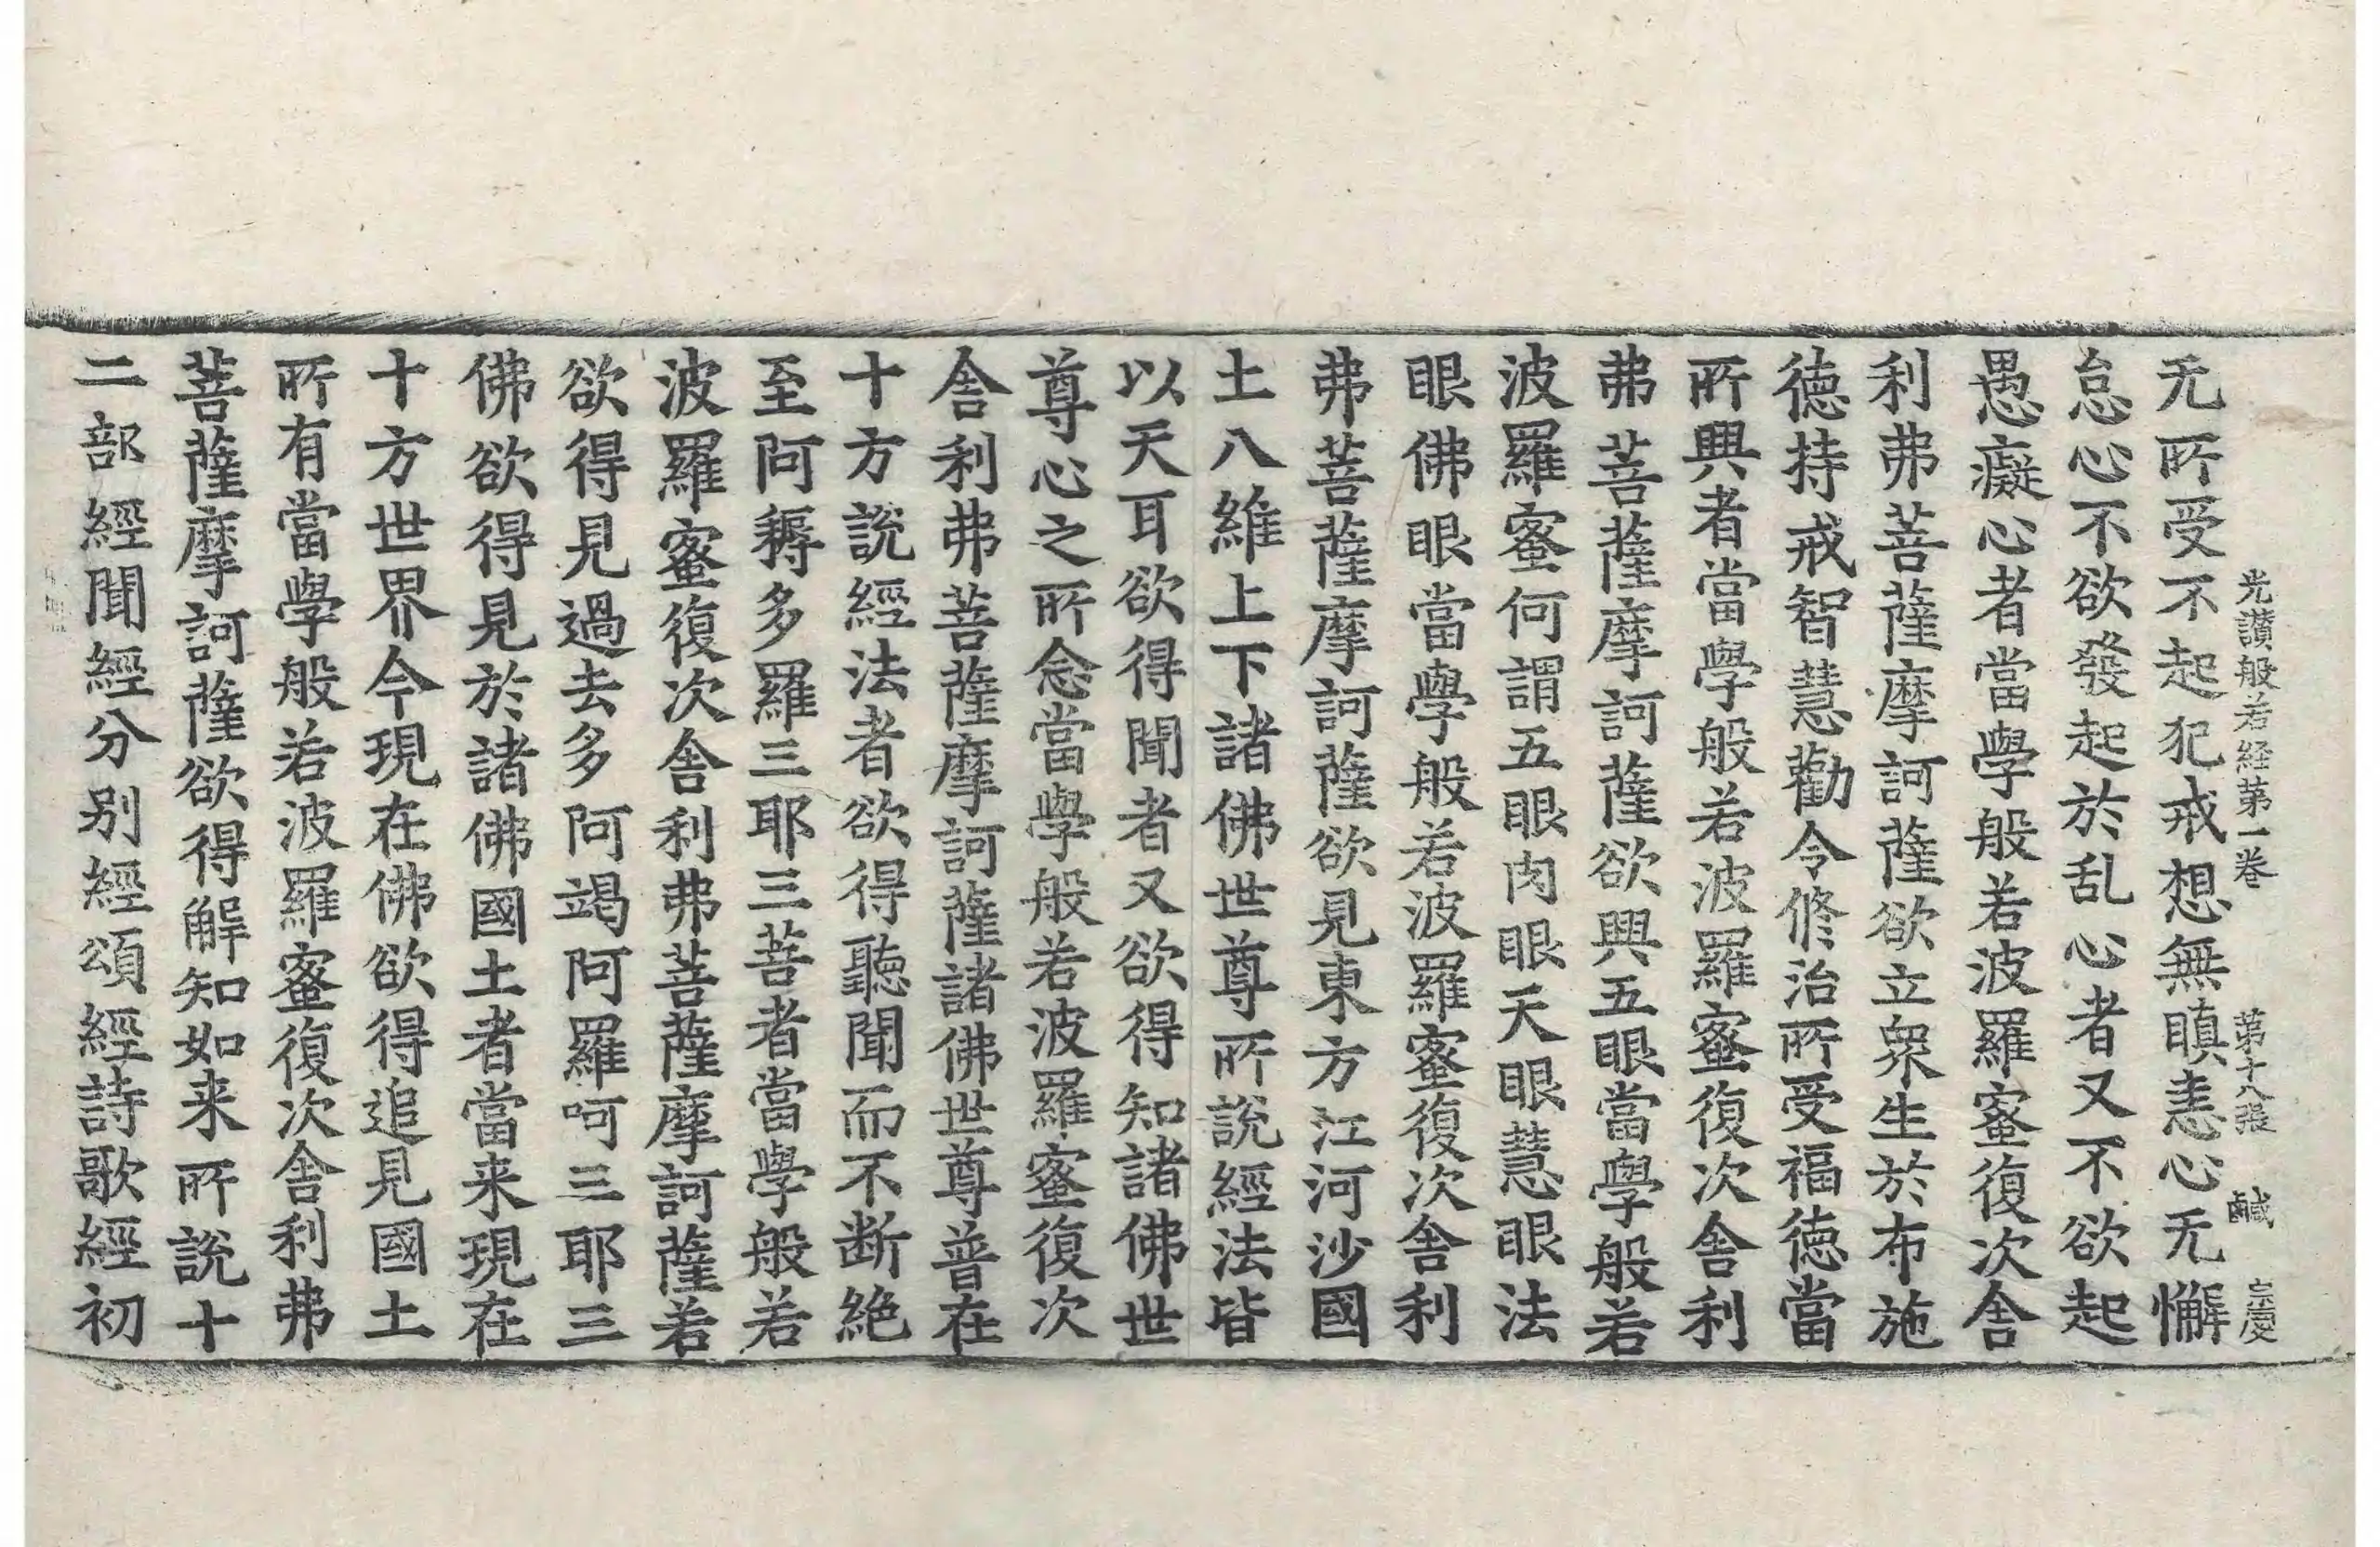 光讃般若経第一巻 第十八張 鹹 忘慶
无所受不起犯戒想無瞋恚心无懈
怠心不欲發起於乱心者又不欲起
愚癡心者當學般若波羅蜜復次舍
利弗菩薩摩訶薩欲立衆生於布施
德持戒智慧勸令修治所受福德當
所興者當學般若波羅蜜復次舍利
弗菩薩摩訶薩欲興五眼當學般若
波羅蜜何謂五眼肉眼天眼慧眼法
眼佛眼當學般若波羅蜜復次舍利
弗菩薩摩訶薩欲見東方江河沙國
土八維上下諸佛世尊所說經法皆
以天耳欲得聞者又欲得知諸佛世
尊心之所念當學般若波羅蜜復次
舍利弗菩薩摩訶薩諸佛世尊普在
十方說經法者欲得聽聞而不断絶
至阿耨多羅三耶三菩者當學般若
波羅蜜復次舍利弗菩薩摩訶薩若
欲得見過去多阿竭阿羅呵三耶三
佛欲得見於諸佛國土者當来現在
十方世界今現在佛欲得追見國土
所有當學般若波羅蜜復次舍利弗
菩薩摩訶薩欲得解知如来所說十
二部經聞經分别經頌經詩歌經初